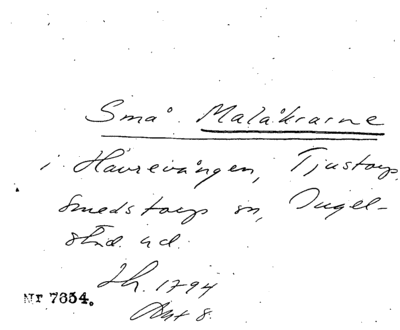 Små Malåkrarne
i Havrevången, Tjustorp,
Smedstorps sn, Ingel-
stad hd.
Lh. 1794
Akt 8.
Nr 7654.